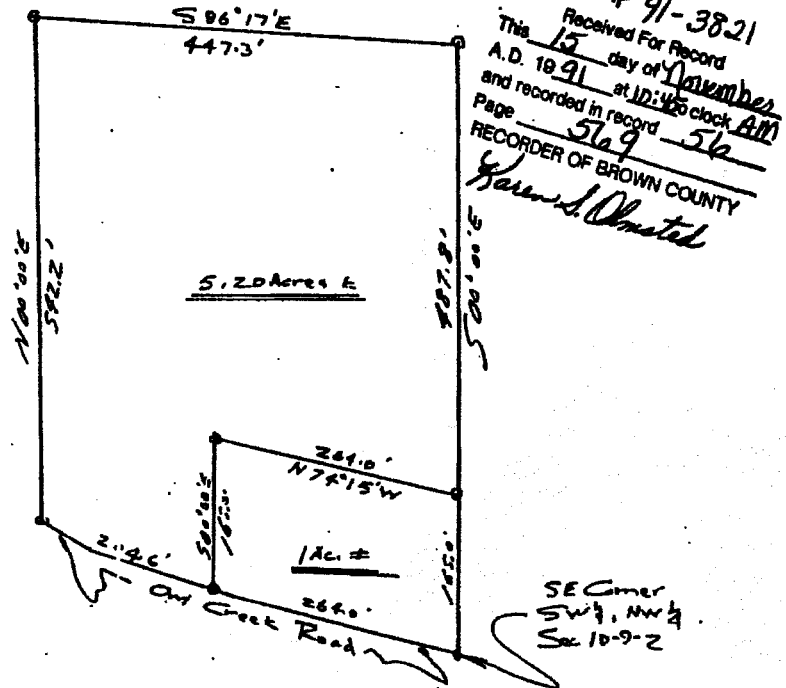 # 91-3821
Received For Record
This 15 day of November
A.D. 1991 at 10:45 o'clock AM
and recorded in record 56
Page 569
RECORDER OF BROWN COUNTY
Karen S. Olmsted
S 86°17'E
447.3'
N 00°00'E
542.2'
5.20 Acres ±
487.8'
S 00°00'E
264.0'
N 74°15'W
S 00°00'E
165.0'
1 Ac. ±
165.0'
264.0'
Owl Creek Road
SE Corner
SW ¼, NW ¼
Sec. 10-9-2